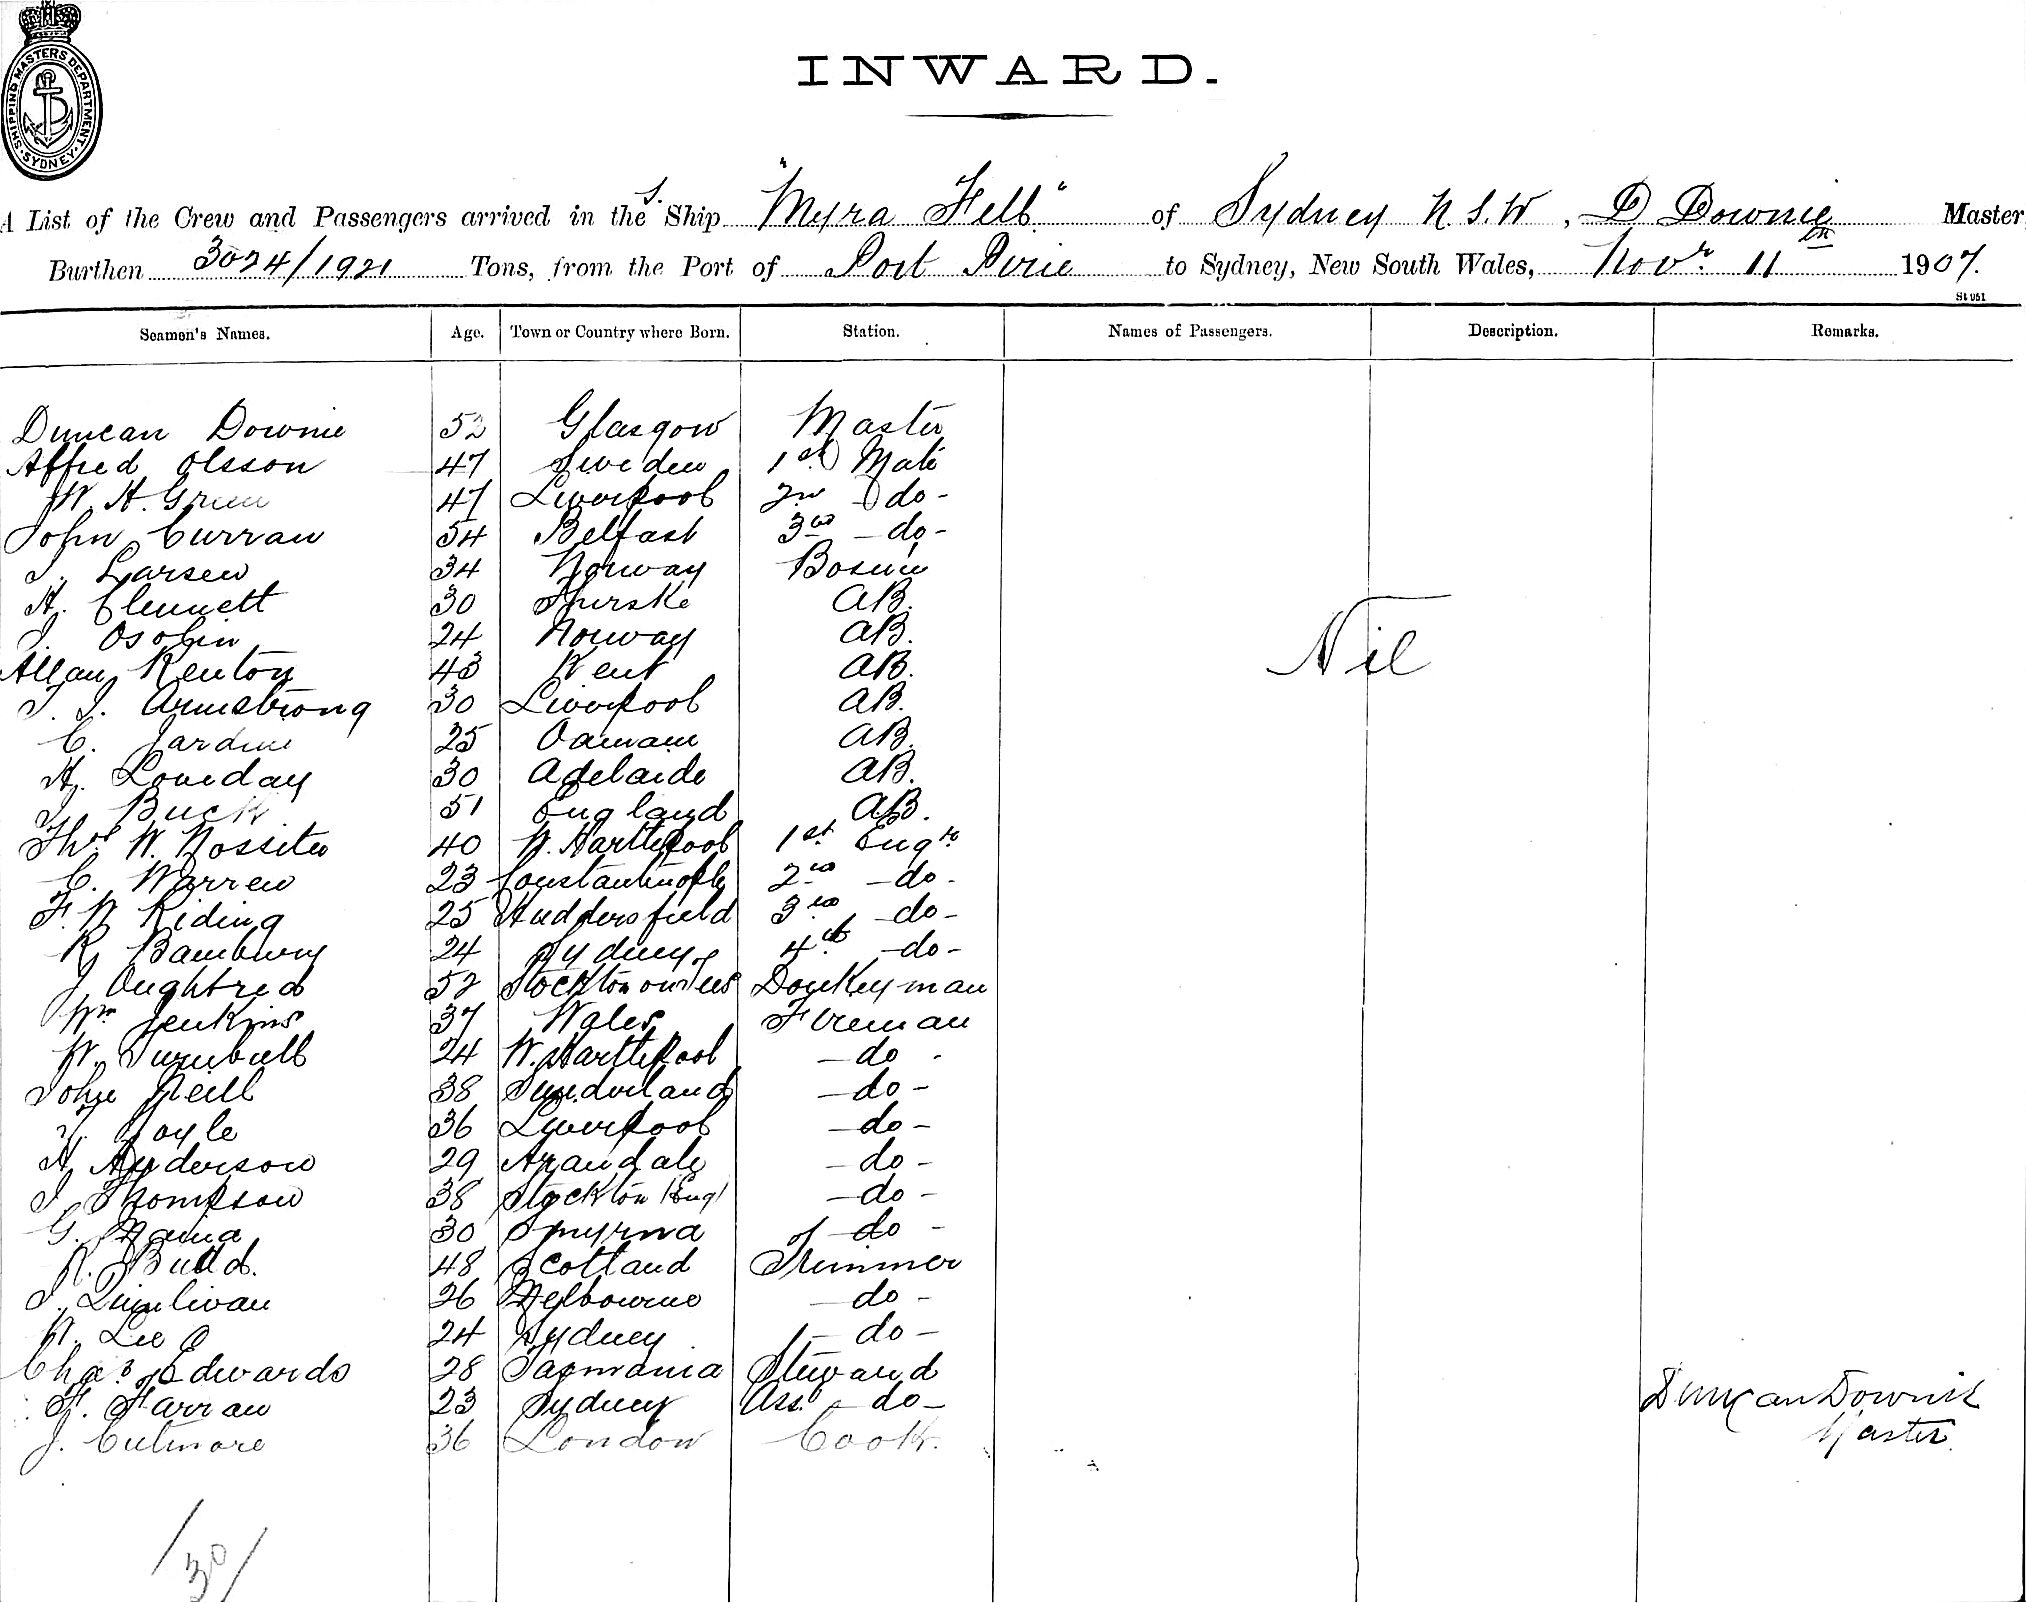 SHIPPING MASTERS DEPARTMENT · SYDNEY ·
INWARD.
A List of the Crew and Passengers arrived in the S. Ship "Myra Fell" of Sydney N.S.W, D Downie Master
Burthen 3024/1921 Tons, from the Port of Port Pirie to Sydney, New South Wales, Novr 11th 1907.
St 051
Seamen's Names. Age. Town or Country where Born. Station. Names of Passengers. Description. Remarks.
Duncan Downie 52 Glasgow Master
Alfred Olsson 47 Sweden 1st Mate
W. H. Green 47 Liverpool 2nd do -
John Curran 54 Belfast 3rd - do -
Larsen 34 Norway Bosun
H. Clennett 30 AB.
24 Norway AB.
Allan Renton 43 Kent AB.
Nil
J. J. Armstrong 30 Liverpool AB.
C. Jardine 25 Oamaru AB.
H. Loveday 30 Adelaide AB.
Buck 51 England AB.
Thos W. Rossiter 40 W. Hartlepool 1st Engr
C. Warren 23 Constantinople 2nd - do -
F. W Riding 25 Huddersfield 3rd - do -
R Bambury 24 Sydney 4th - do -
J Oughtred 52 Stockton on Tees Donkeyman
Wm Jenkins 37 Wales Fireman
W. Turnbull 24 W. Hartlepool - do -
John Neill 38 Sunderland - do -
36 Liverpool - do -
A Anderson 29 Arandale - do -
J Thompson 38 Stockton (Eng) - do -
G. 30 Smyrna - do -
R. Budd. 48 Scotland Trimmer
J. Quinlivan 26 Melbourne - do -
Lee 24 Sydney - do -
Chas Edwards 28 Tasmania Steward
F. Farran 23 Sydney Ass. - do -
Duncan Downie
J. Cutmore 36 London Cook.
Master
/30/